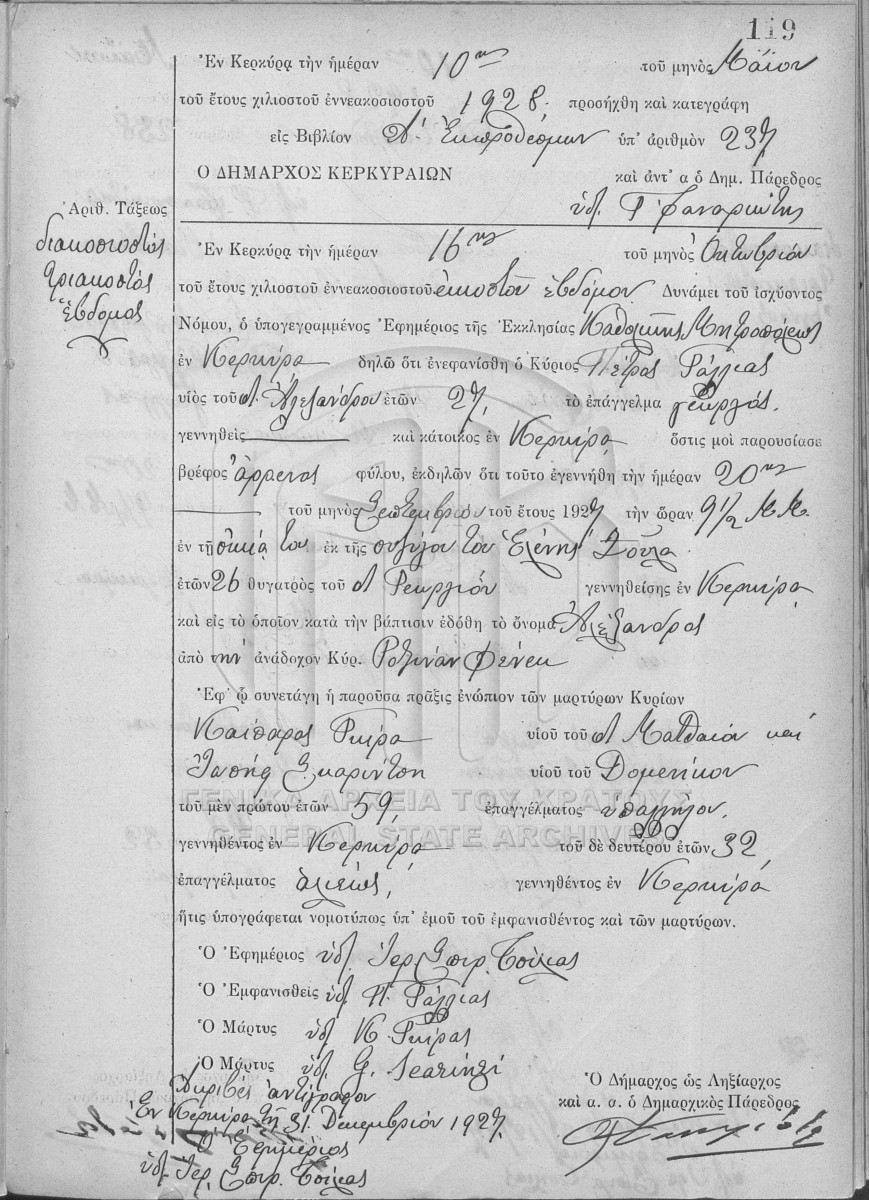 119
Ἐν Κερκύρᾳ τὴν ἡμέραν 10ην τοῦ μηνὸς Μαΐου
τοῦ ἔτους χιλιοστοῦ ἐννεακοσιοστοῦ 1928 προσήχθη καὶ κατεγράφη
εἰς Βιβλίον Α΄. Ἐκπροθέσμων ὑπ' ἀριθμὸν 237
Ο ΔΗΜΑΡΧΟΣ ΚΕΡΚΥΡΑΙΩΝ καὶ ἀντ' α ὁ Δημ. Πάρεδρος
ὑπ. Γ Φαναριώτης
Ἀριθ. Τάξεως
διακοσιοστὸς
τριακοστὸς
ἕβδομος
Ἐν Κερκύρᾳ τὴν ἡμέραν 16ην τοῦ μηνὸς Ὀκτωβρίου
τοῦ ἔτους χιλιοστοῦ ἐννεακοσιοστοῦ εἰκοστοῦ ἑβδόμου Δυνάμει τοῦ ἰσχύοντος
Νόμου, ὁ ὑπογεγραμμένος Ἐφημέριος τῆς Ἐκκλησίας Καθολικῆς Μητροπόλεως
ἐν Κερκύρᾳ δηλῶ ὅτι ἐνεφανίσθη ὁ Κύριος Πέτρος
υἱὸς τοῦ Ἀλεξάνδρου ἐτῶν 27, τὸ ἐπάγγελμα γεωργός.
γεννηθεὶς καὶ κάτοικος ἐν Κερκύρᾳ ὅστις μοὶ παρουσίασε
βρέφος ἄρρενος φύλου, ἐκδηλῶν ὅτι τοῦτο ἐγεννήθη τὴν ἡμέραν 20ην
τοῦ μηνὸς Σεπτεμβρίου τοῦ ἔτους 1927 τὴν ὥραν 9 1/2 π.μ.
ἐν τῇ οἰκίᾳ του ἐκ τῆς συζύγου του Ἑλένης Σούλα
ἐτῶν 26 θυγατρὸς τοῦ Γεωργίου γεννηθείσης ἐν Κερκύρᾳ
καὶ εἰς τὸ ὁποῖον κατὰ τὴν βάπτισιν ἐδόθη τὸ ὄνομα Ἀλέξανδρος
ἀπὸ τὴν ἀνάδοχον Κύρ. Ροζίναν Φένεκ
Ἐφ' ᾧ συνετάγη ἡ παροῦσα πρᾶξις ἐνώπιον τῶν μαρτύρων Κυρίων
υἱοῦ τοῦ Ματθαίου καὶ
Ἰωσὴφ Σκαρίντση υἱοῦ τοῦ Δομενίκου
ΓΕΝΙΚΑ ΑΡΧΕΙΑ ΤΟΥ ΚΡΑΤΟΥΣ
τοῦ μὲν πρώτου ἐτῶν 59, ἐπαγγέλματος ὑπαλλήλου,
GENERAL STATE ARCHIVES
γεννηθέντος ἐν Κερκύρᾳ τοῦ δὲ δευτέρου ἐτῶν 32,
ἐπαγγέλματος ἁλιέως, γεννηθέντος ἐν Κερκύρᾳ
ἥτις ὑπογράφεται νομοτύπως ὑπ' ἐμοῦ τοῦ ἐμφανισθέντος καὶ τῶν μαρτύρων.
Ὁ Ἐφημέριος ὑπ. Ἱερ. Σπυρ.
Ὁ Ἐμφανισθεὶς ὑπ. Π.
Ὁ Μάρτυς ὑπ. Κ.
Ὁ Μάρτυς ὑπ. G. Scarinzi
Ἀκριβὲς ἀντίγραφον
Ἐν Κερκύρᾳ τῇ 31 Δεκεμβρίου 1927.
Ὁ Ἐφημέριος
ὑπ. Ἱερ. Σπυρ.
Ὁ Δήμαρχος ὡς Ληξίαρχος
καὶ α. α. ὁ Δημαρχικὸς Πάρεδρος